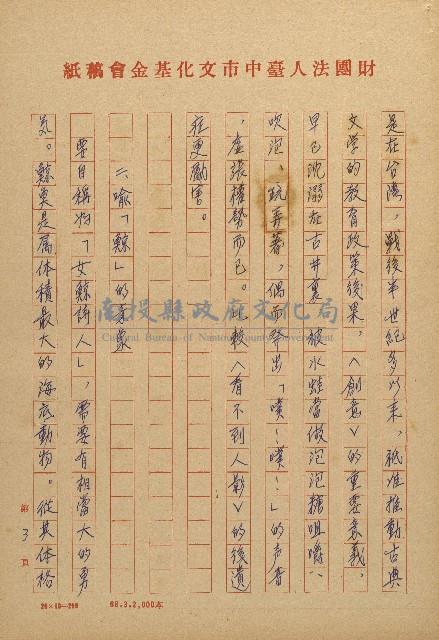 財團法人臺中市文化基金會稿紙
是在台灣，戰後半世紀多以來，祇准推動古典
文学的教育政策後果，〈創意〉的重要意義，
早已沈溺在古井裏被水蛙當做泡泡糖咀嚼、
吹泡、玩弄著，偶而發出「噗！噗！」的声音
，虛張權勢而已。比較〈看不到人影〉的後遺
症更厲害。
二、喻「鯨」的意義
要自稱為「女鯨詩人」，需要有相當大的勇
氣。鯨魚是屬体積最大的海底動物。從其体格
第3頁
南投縣政府文化局
Cultural Bureau of Nantou County Government
68.3.2,000本